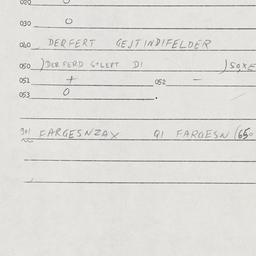 020 0
030 0
040 DERFERT GEJTINDIFELDER
050 )DER FERD GOLEPT DI )
051 + 052 -
053 0 .
901 FARGESNZAX 91 FARGESN (650